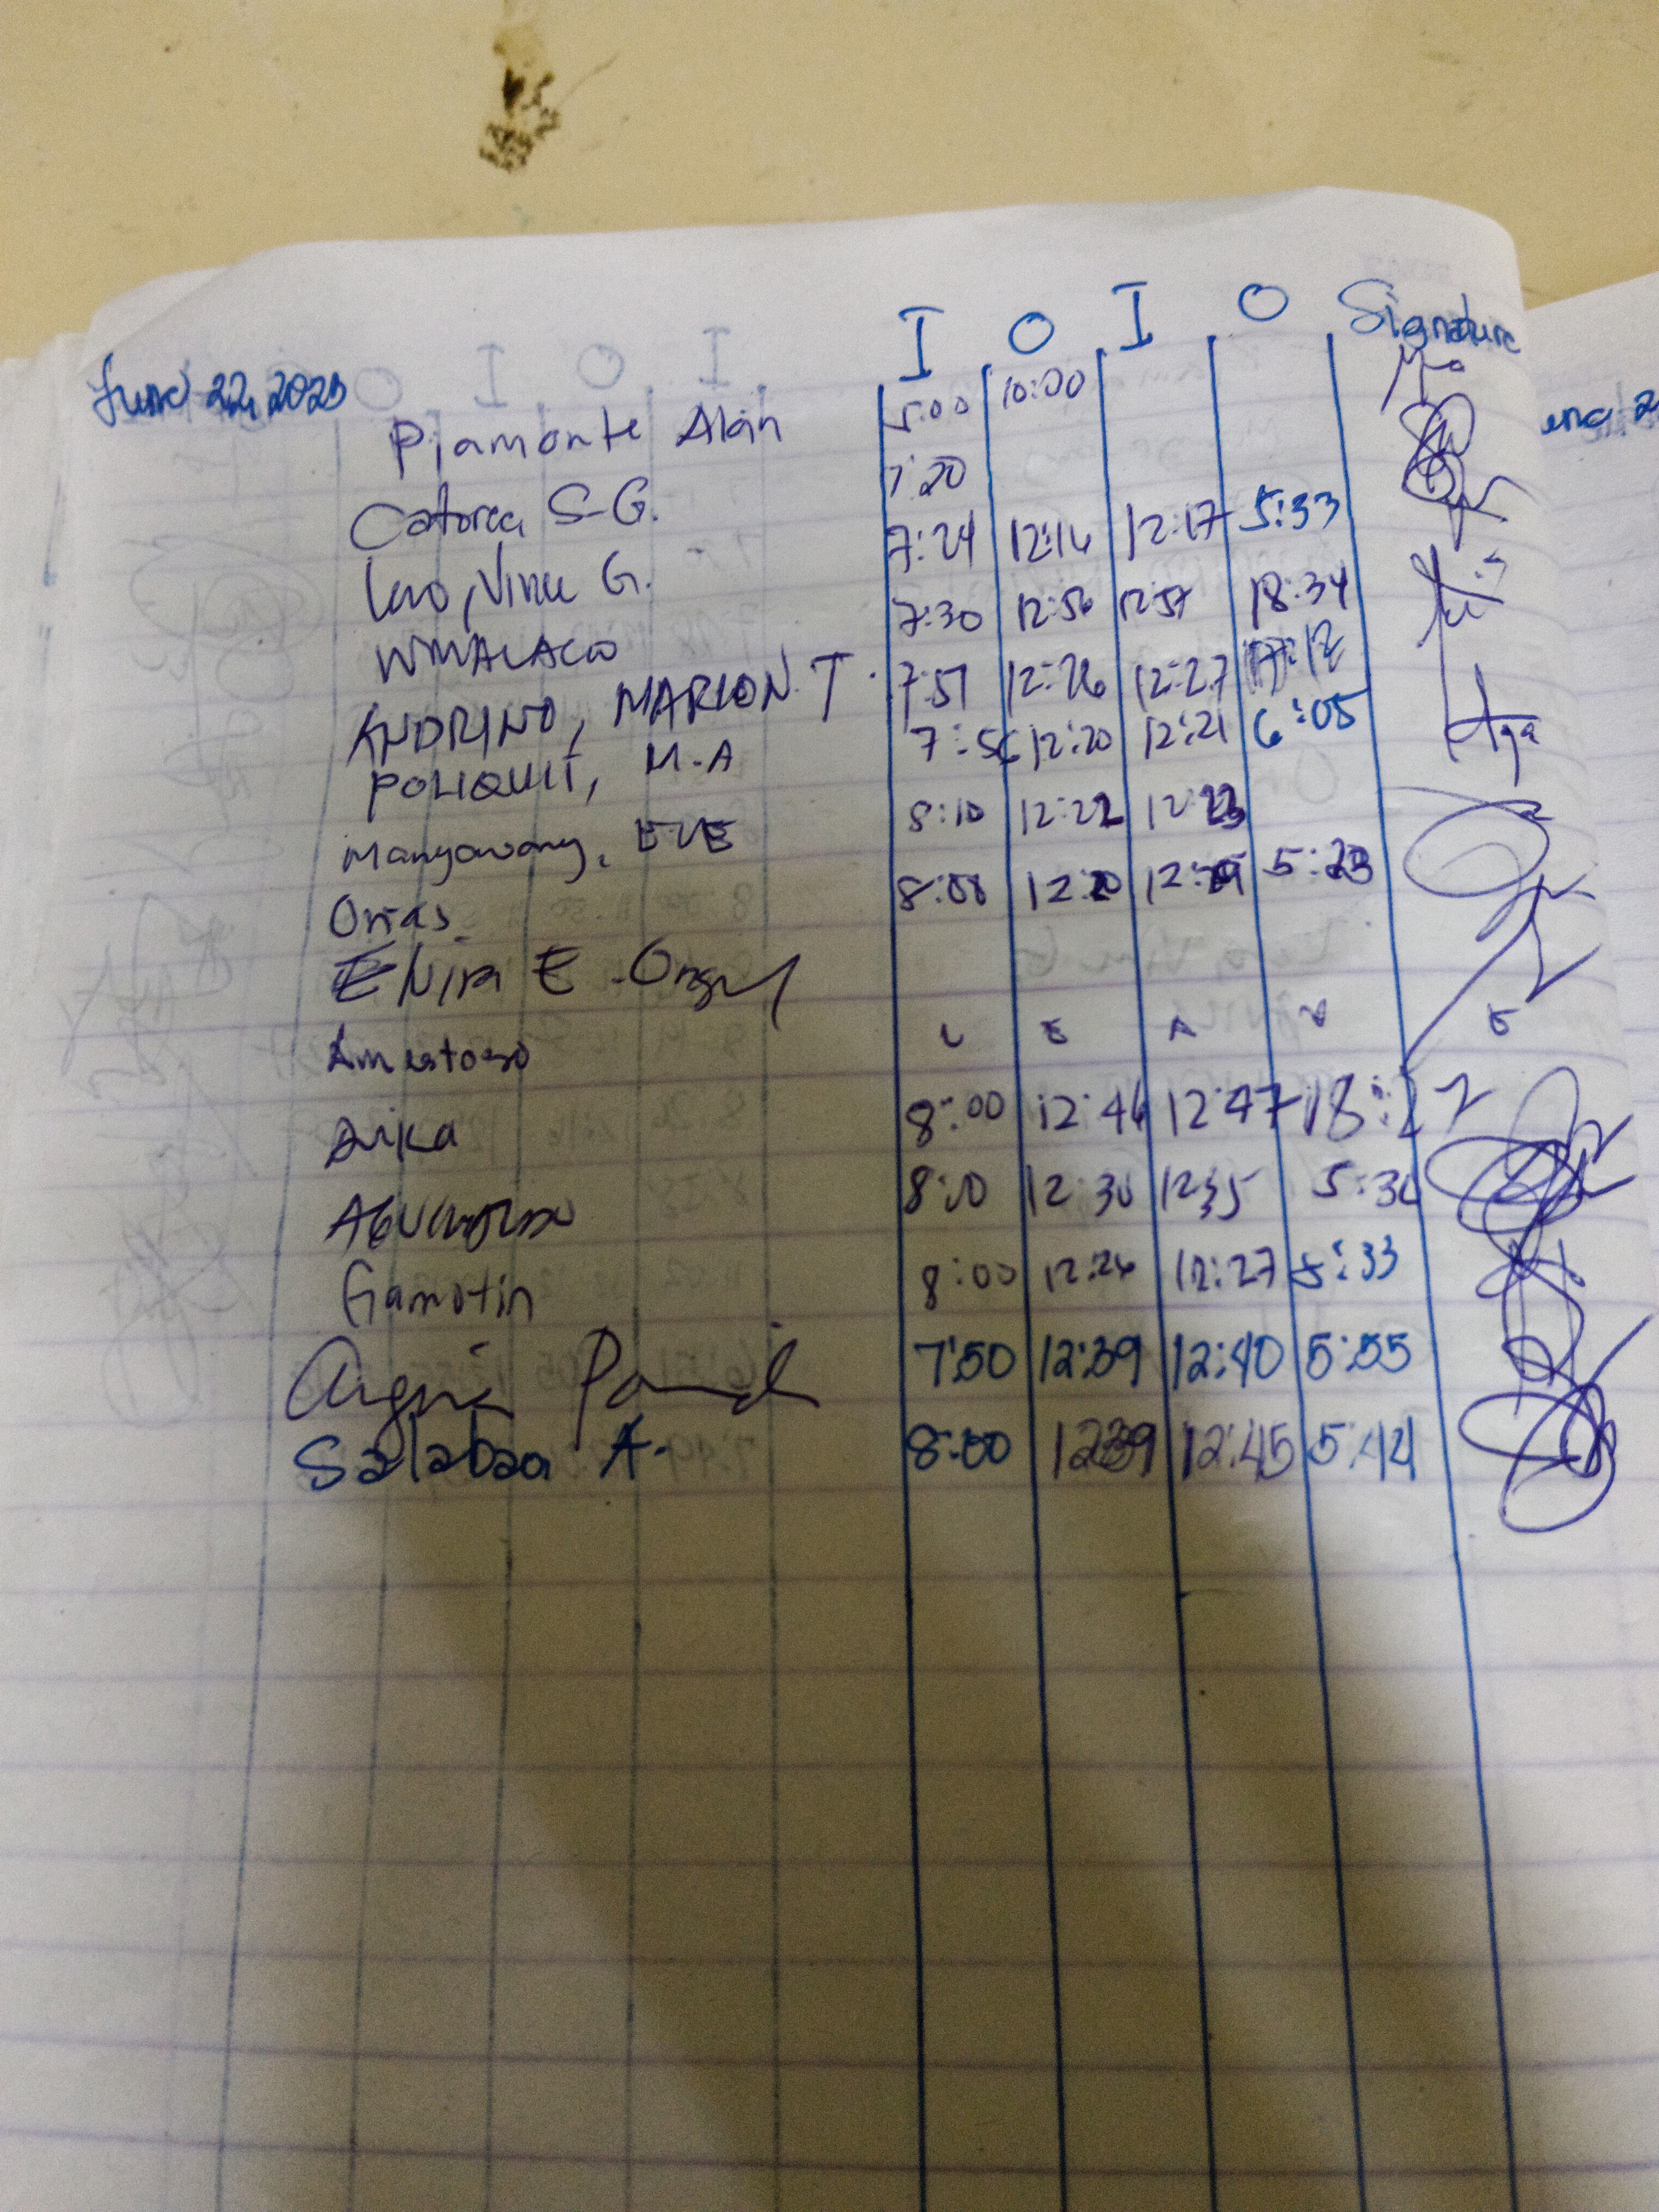 I O I O Signature
June 22, 2023
Piamonte Alan 5:00 10:00
Catorce S-G. 7:20
Lao, Vince G. 7:24 12:16 12:17 5:33
7:30 12:56 12:57 18:34
ANDRINO, MARLON T. 7:51 12:26 12:27 17:12
POLIQUIT, M.A 7:56 12:20 12:21 6:05
Mangawang, EVE 8:10 12:22 12:23
Orias 8:00 12:20 5:23
Elvira E.
Amestoso L E A V E
Arika 8:00 12:46 12:47 18:27
8:10 12:30 12:35 5:30
Gamotin 8:00 12:26 12:27 5:33
Argie 7:50 12:39 12:40 5:55
Salabao A. 8:00 12:39 12:45 5:44